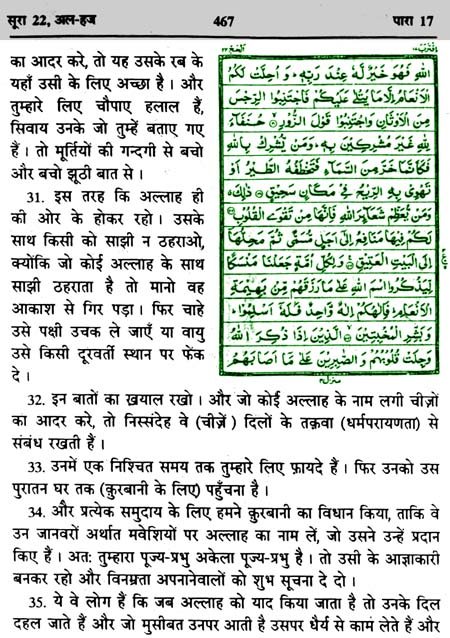 सूरा 22, अल-हज
467
पारा 17
का आदर करे, तो यह उसके रब के
यहाँ उसी के लिए अच्छा है। और
तुम्हारे लिए चौपाए हलाल हैं,
सिवाय उनके जो तुम्हें बताए गए
हैं। तो मूर्तियों की गन्दगी से बचो
और बचो झूठी बात से।
31. इस तरह कि अल्लाह ही
की ओर के होकर रहो। उसके
साथ किसी को साझी न ठहराओ,
क्योंकि जो कोई अल्लाह के साथ
साझी ठहराता है तो मानो वह
आकाश से गिर पड़ा। फिर चाहे
उसे पक्षी उचक ले जाएँ या वायु
उसे किसी दूरवर्ती स्थान पर फेंक
दे।
اللّٰهِ فَهُوَ خَيْرٌ لَّهٗ عِنْدَ رَبِّهٖ ؕ وَ اُحِلَّتْ لَكُمُ
الْاَنْعَامُ اِلَّا مَا يُتْلٰى عَلَيْكُمْ فَاجْتَنِبُوا الرِّجْسَ
مِنَ الْاَوْثَانِ وَاجْتَنِبُوْا قَوْلَ الزُّوْرِ ۙ حُنَفَآءَ
لِلّٰهِ غَيْرَ مُشْرِكِيْنَ بِهٖ ؕ وَمَنْ يُّشْرِكْ بِاللّٰهِ
فَكَاَنَّمَا خَرَّ مِنَ السَّمَآءِ فَتَخْطَفُهُ الطَّيْرُ اَوْ
تَهْوِيْ بِهِ الرِّيْحُ فِيْ مَكَانٍ سَحِيْقٍ ذٰلِكَ ۗ
وَمَنْ يُّعَظِّمْ شَعَآئِرَ اللّٰهِ فَاِنَّهَا مِنْ تَقْوَى الْقُلُوْبِ
لَكُمْ فِيْهَا مَنَافِعُ اِلٰٓى اَجَلٍ مُّسَمًّى ثُمَّ مَحِلُّهَآ
اِلَى الْبَيْتِ الْعَتِيْقِ وَلِكُلِّ اُمَّةٍ جَعَلْنَا مَنْسَكًا
لِّيَذْكُرُوا اسْمَ اللّٰهِ عَلٰى مَا رَزَقَهُمْ مِّنْ بَهِيْمَةِ
الْاَنْعَامِ ؕ فَاِلٰهُكُمْ اِلٰهٌ وَّاحِدٌ فَلَهٗٓ اَسْلِمُوْا ؕ
وَبَشِّرِ الْمُخْبِتِيْنَ ۙ الَّذِيْنَ اِذَا ذُكِرَ اللّٰهُ
وَجِلَتْ قُلُوْبُهُمْ وَالصّٰبِرِيْنَ عَلٰى مَآ اَصَابَهُمْ
32. इन बातों का ख़याल रखो। और जो कोई अल्लाह के नाम लगी चीज़ों
का आदर करे, तो निस्संदेह वे (चीज़ें) दिलों के तक़वा (धर्मपरायणता) से
संबंध रखती हैं।
33. उनमें एक निश्चित समय तक तुम्हारे लिए फ़ायदे हैं। फिर उनको उस
पुरातन घर तक (क़ुरबानी के लिए) पहुँचना है।
34. और प्रत्येक समुदाय के लिए हमने क़ुरबानी का विधान किया, ताकि वे
उन जानवरों अर्थात मवेशियों पर अल्लाह का नाम लें, जो उसने उन्हें प्रदान
किए हैं। अतः तुम्हारा पूज्य-प्रभु अकेला पूज्य-प्रभु है। तो उसी के आज्ञाकारी
बनकर रहो और विनम्रता अपनानेवालों को शुभ सूचना दे दो।
35. ये वे लोग हैं कि जब अल्लाह को याद किया जाता है तो उनके दिल
दहल जाते हैं और जो मुसीबत उनपर आती है उसपर धैर्य से काम लेते हैं और